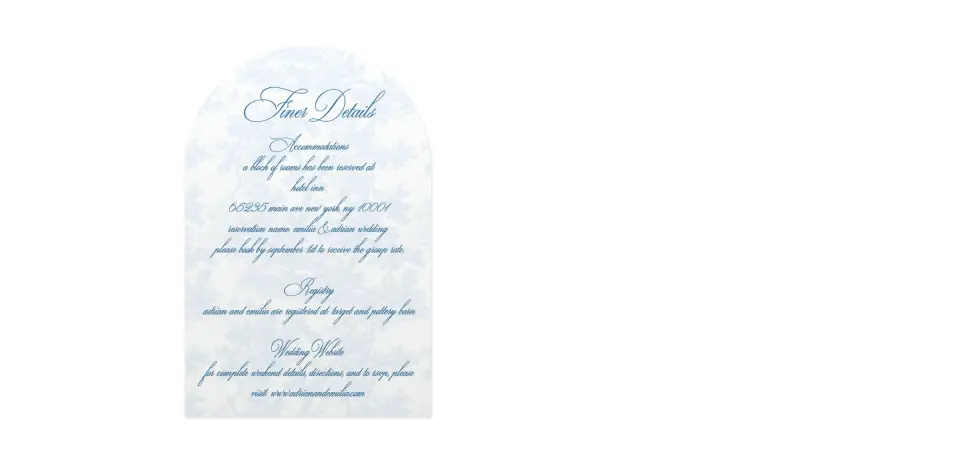 Finer Details
Accommodations
a block of rooms has been reserved at
hotel inn
65235 main ave new york, ny 10001
reservation name: emilia & adrian wedding
please book by september 1st to receive the group rate.
Registry
adrian and emilia are registered at target and pottery barn
Wedding Website
for complete weekend details, directions, and to rsvp, please
visit: www.adrianandemilia.com